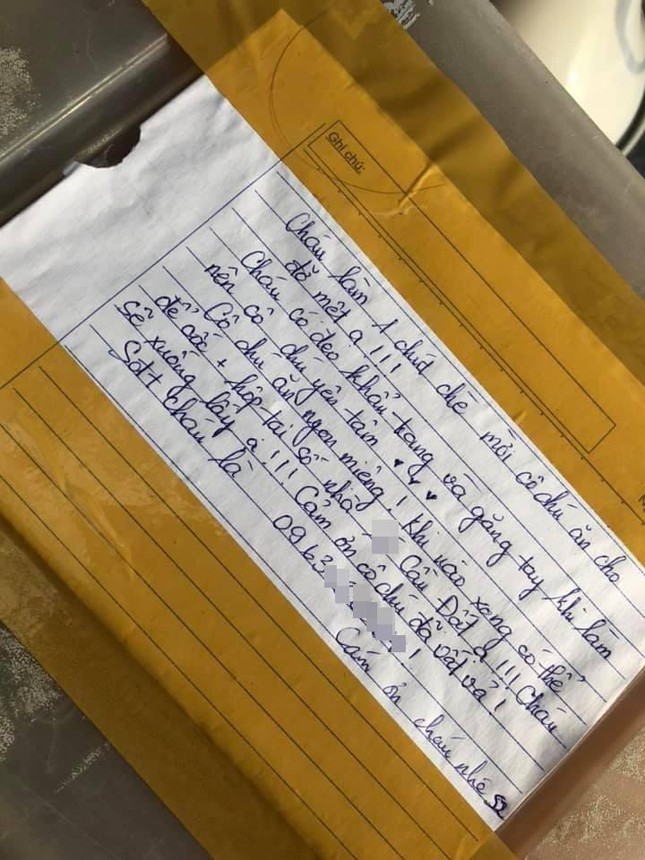 Ghi chú:
Cháu làm 1 chút chè mời cô chú ăn cho
đỡ mệt ạ !!!
Cháu có đeo khẩu trang và găng tay khi làm
nên cô chú yên tâm ♥ ♥ ♥
Cô chú ăn ngon miệng! Khi nào xong có thể
để cốc + hộp tại số nhà Cầu Đất ạ !!! Cháu
sẽ xuống lấy ạ !!! Cảm ơn cô chú đã vất vả!
Sđt cháu là 0963 !
Cám ơn cháu nhé